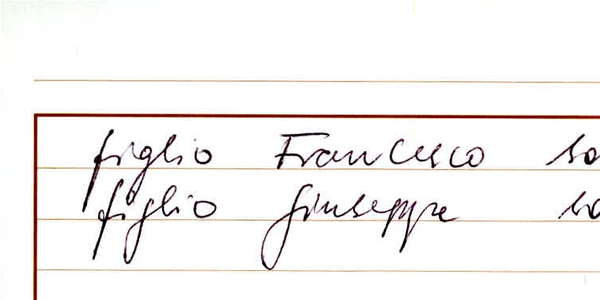 figlio Francesco
figlio Giuseppe